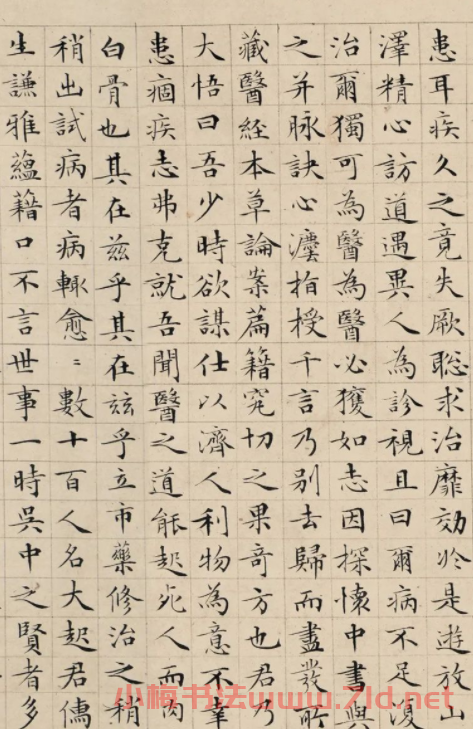 患耳疾久之竟失厥聡求治靡効於是遊放山
澤精心訪道遇異人為診視且曰爾病不足復
治爾獨可為醫為醫必獲如志因探懷中書與
之并脉訣心灋指授千言乃别去歸而盡發所
藏醫經本草論案篇籍究切之果竒方也君乃
大悟曰吾少時欲謀仕以濟人利物為意不幸
患痼疾志弗克就吾聞醫之道能起死人而肉
白骨也其在兹乎其在兹乎立市藥修治之稍
稍出試病者病輒愈〻數十百人名大起君儒
生謙雅蘊藉口不言世事一時吳中之賢者多
小楷书法www.7ld.net